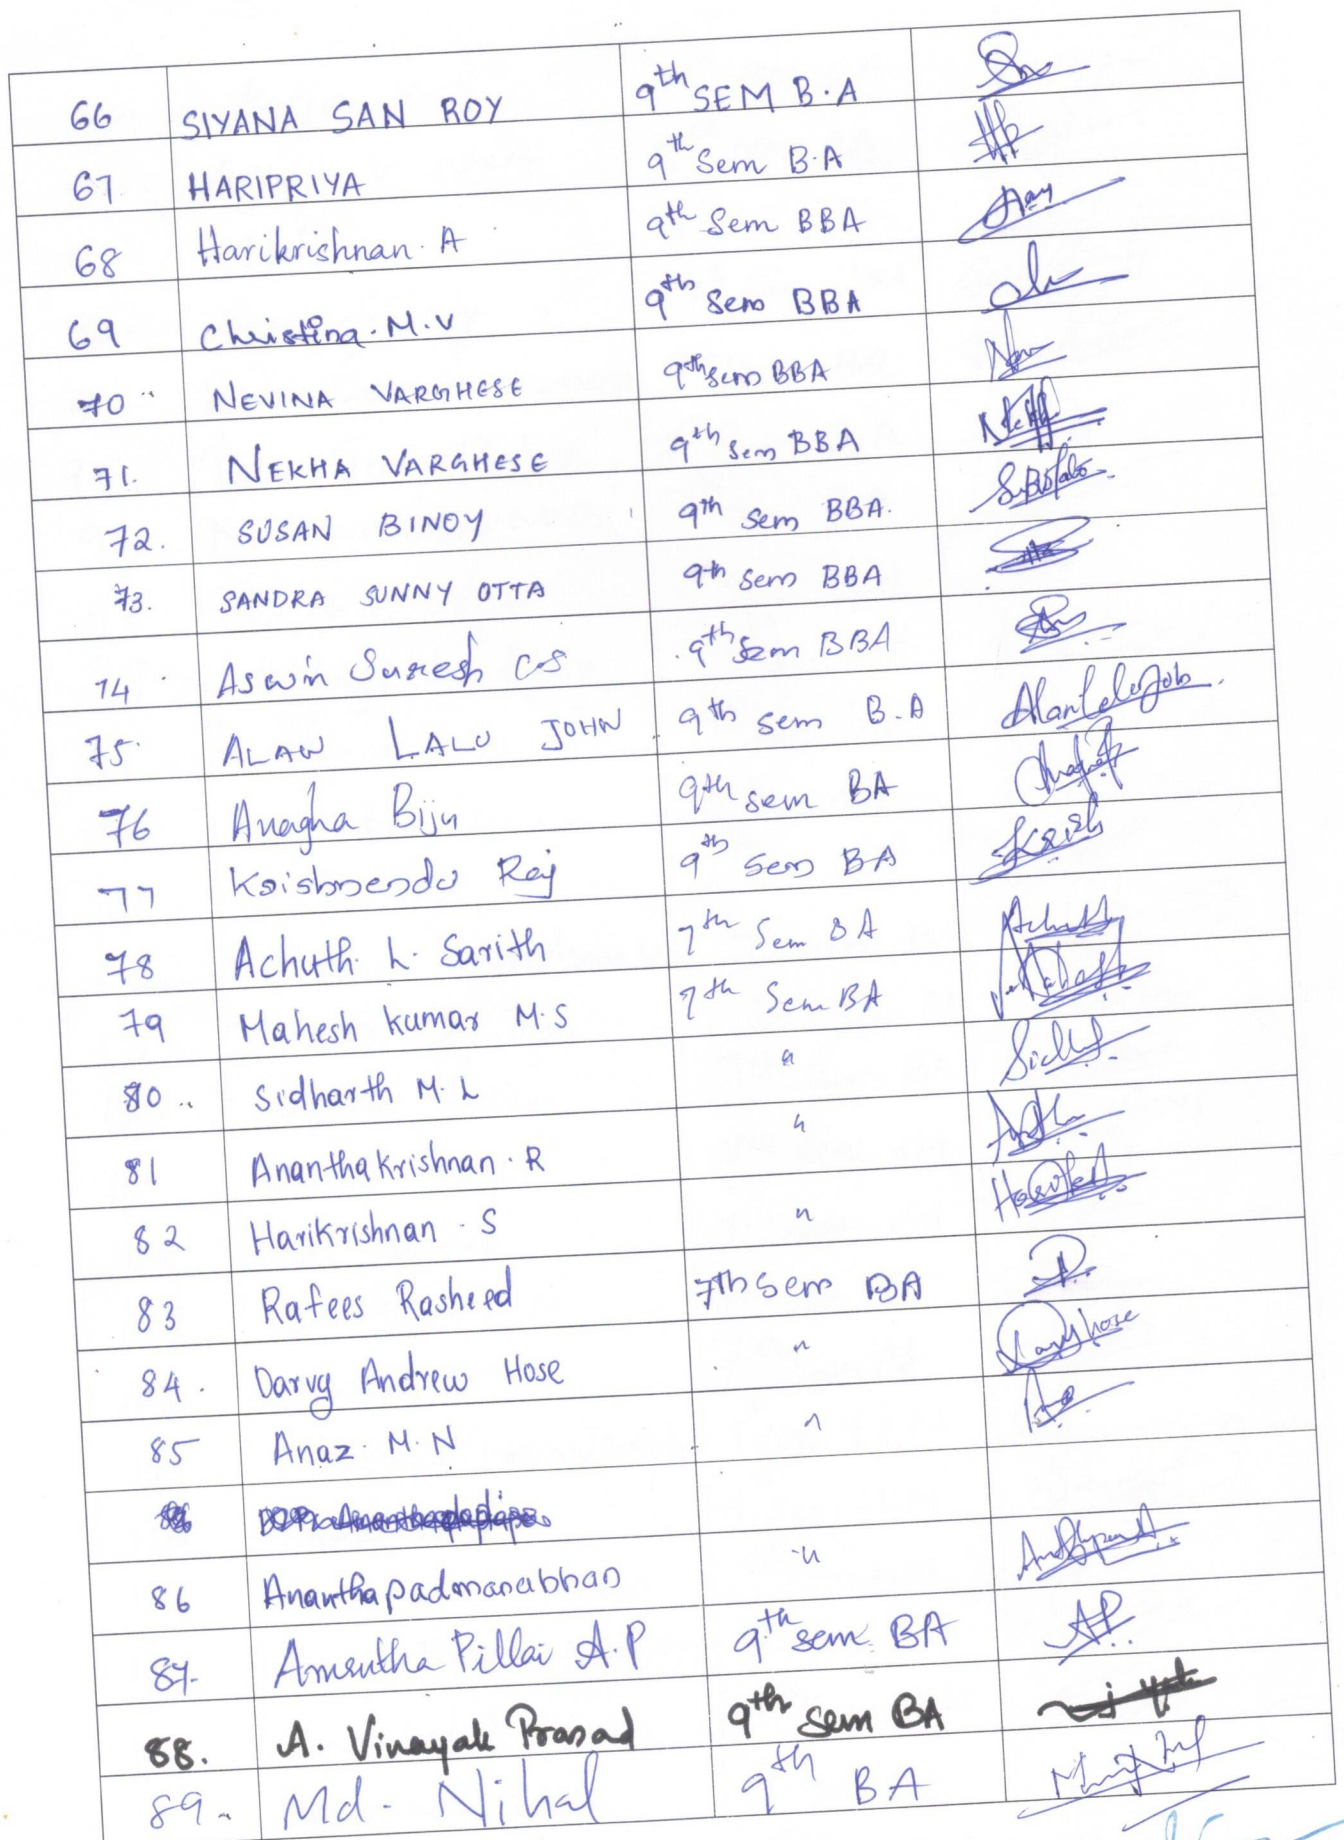 66 SIYANA SAN ROY 9th SEM B.A
67 HARIPRIYA 9th Sem B.A
68 Harikrishnan. A 9th Sem BBA
69 Christina. M.V 9th Sem BBA
70 NEVINA VARGHESE 9th Sem BBA
71. NEKHA VARGHESE 9th Sem BBA
72. SUSAN BINOY 9th Sem BBA.
73. SANDRA SUNNY OTTA 9th Sem BBA
74 Aswin Suresh C S 9th Sem BBA
75. ALAN LALU JOHN 9th Sem B.A
76 Anagha Biju 9th sem BA
77 Krishnendu Raj 9th Sem BA
78 Achuth. L. Sarith 7th Sem BA
79 Mahesh Kumar M.S 7th Sem BA
80 Sidharth M. L "
81 Ananthakrishnan. R "
82 Harikrishnan. S "
83 Rafees Rasheed 7th Sem BA
84. Darvy Andrew Hose "
85 Anaz. M. N "
86 Ananthapadmanabhan "
87. Amrutha Pillai A.P 9th sem BA
88. A. Vinayak Prasad 9th sem BA
89. Md. Nihal 9th BA